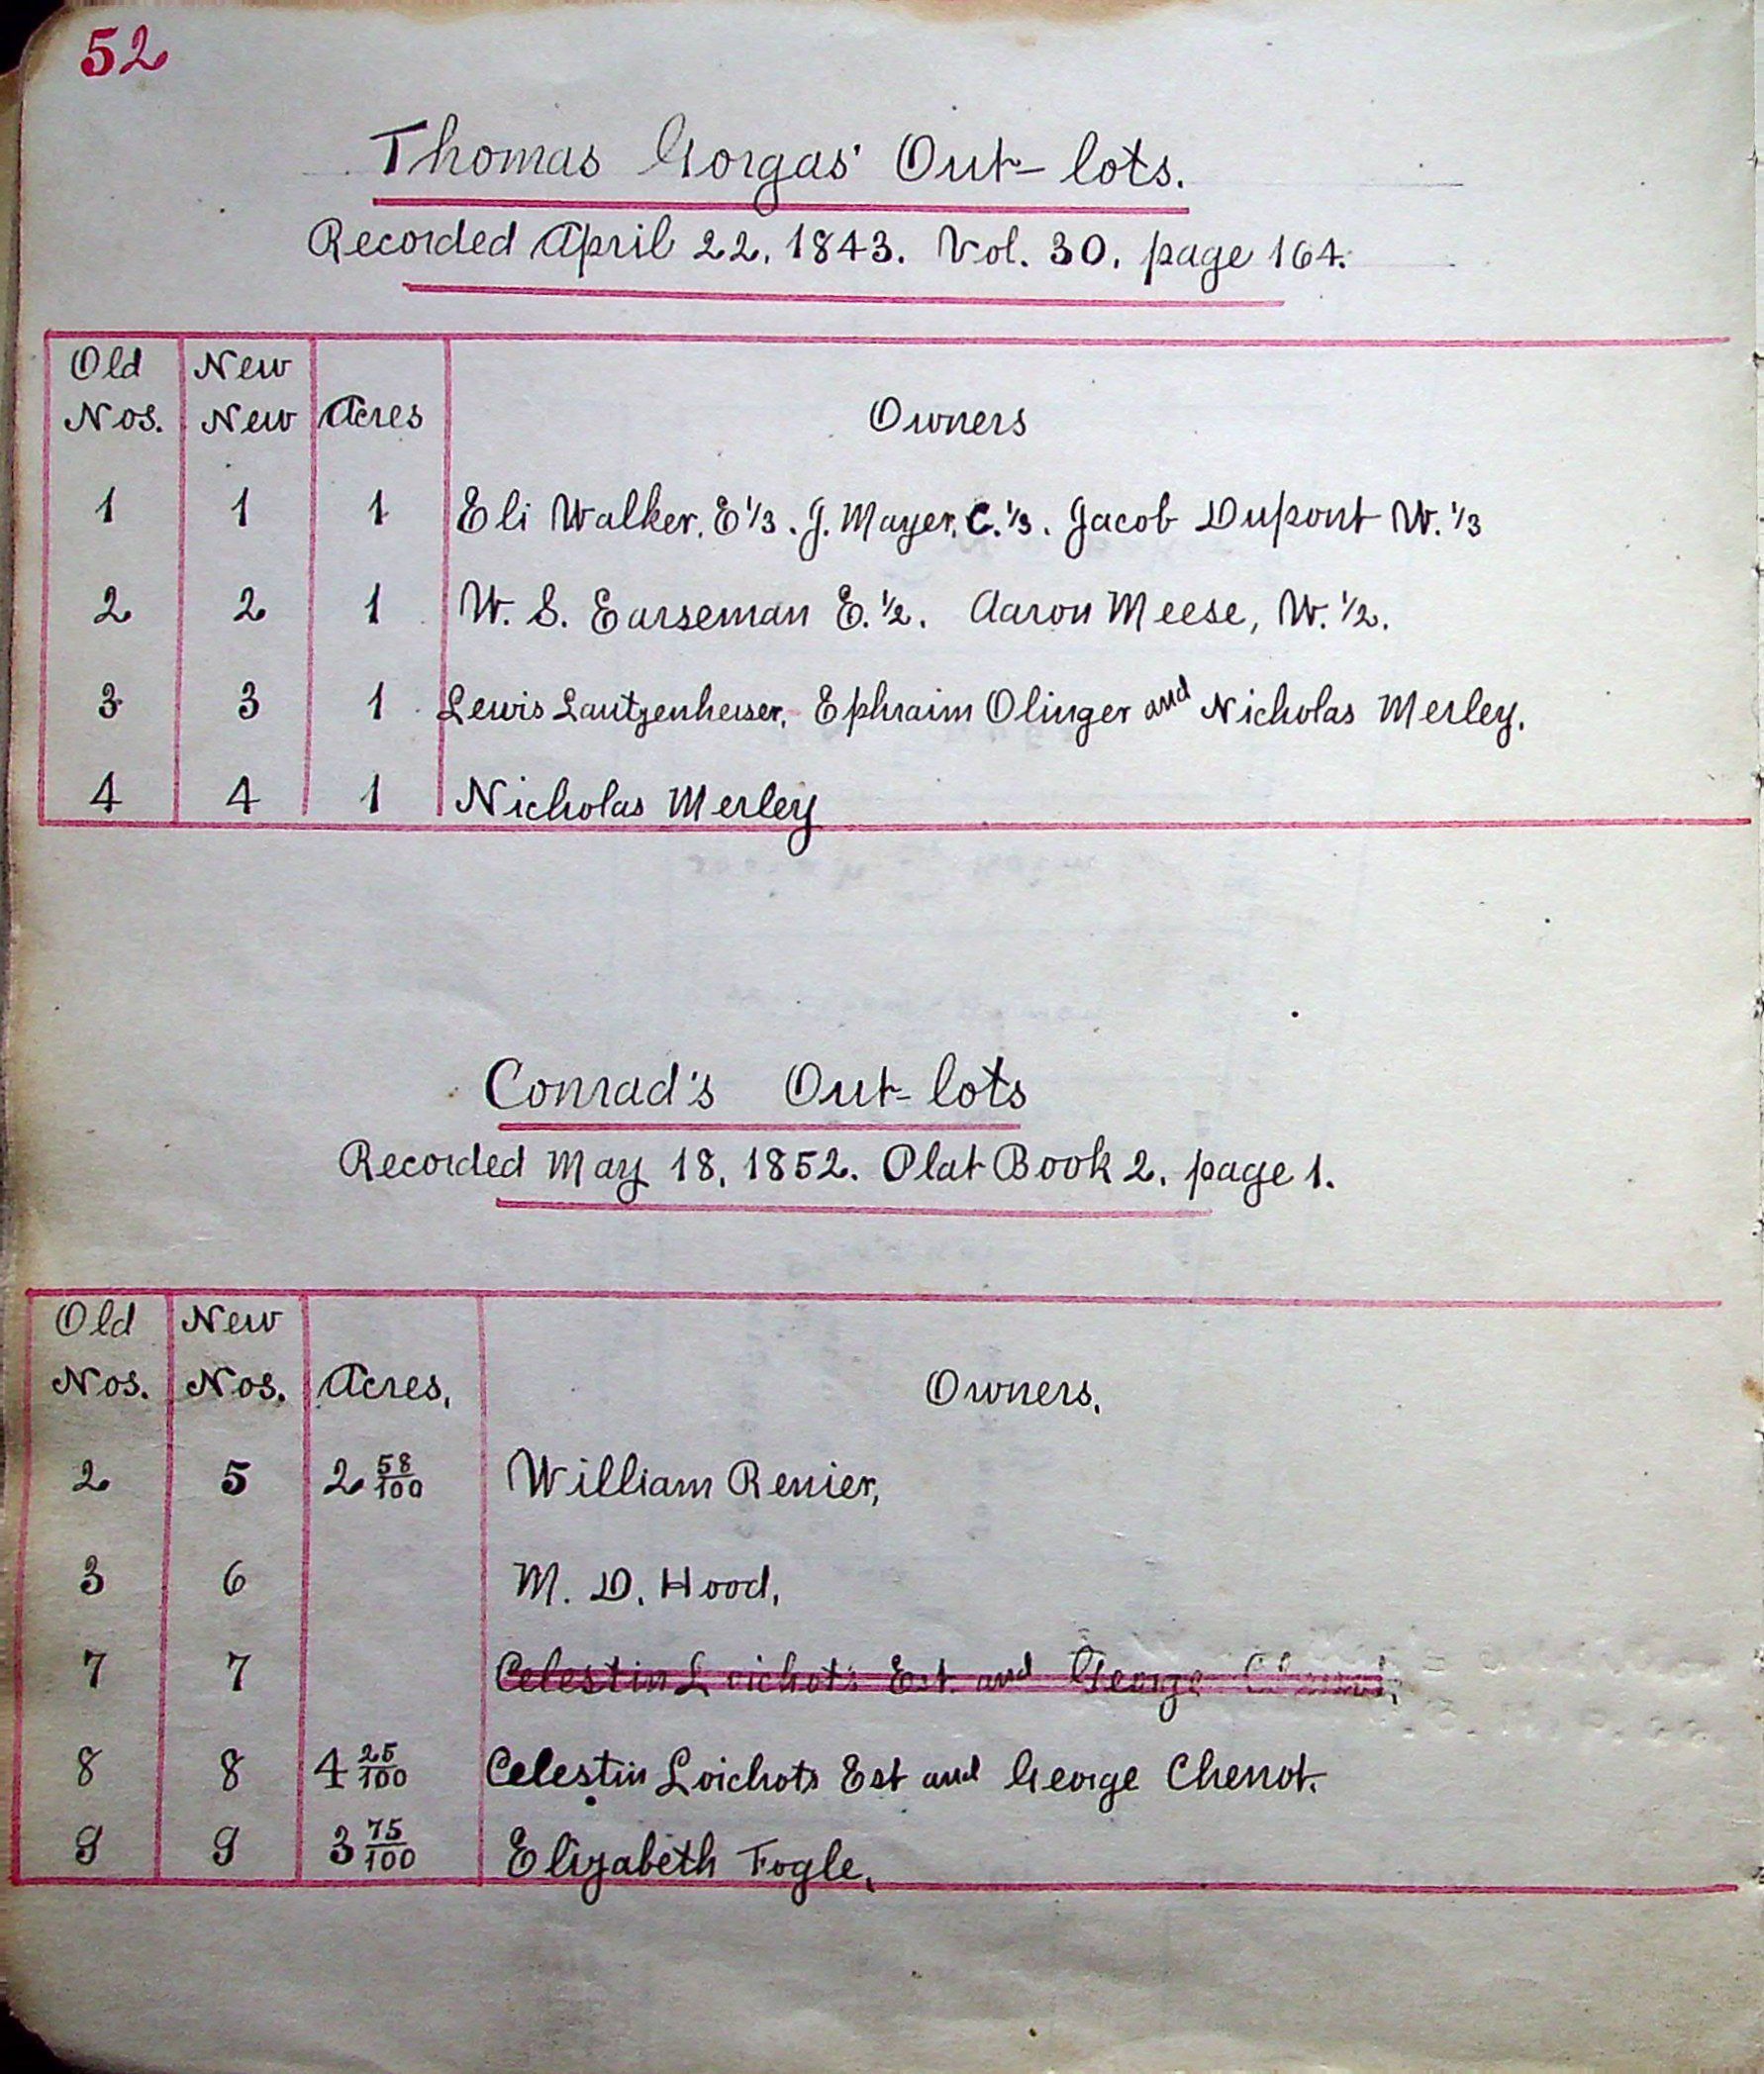 52
Thomas Gorgas' Out-lots.
Recorded April 22, 1843. Vol. 30, page 164.
Old New
Nos. New Acres Owners
1 1 1 Eli Walker, E 1/3. J. Mayer, C. 1/3. Jacob Dupont W. 1/3
2 2 1 W. S. Earseman E. 1/2. Aaron Meese, W. 1/2.
3 3 1 Lewis Lautzenheiser, Ephraim Olinger and Nicholas Merley.
4 4 1 Nicholas Merley
Conrad's Out-lots
Recorded May 18, 1852. Plat Book 2, page 1.
Old New
Nos. Nos. Acres, Owners,
2 5 2 58/100 William Renier,
3 6 M. D. Hood,
7 7 Celestin Loichots Est and George Chenot,
8 8 4 25/100 Celestin Loichots Est and George Chenot.
9 9 3 75/100 Elizabeth Fogle,